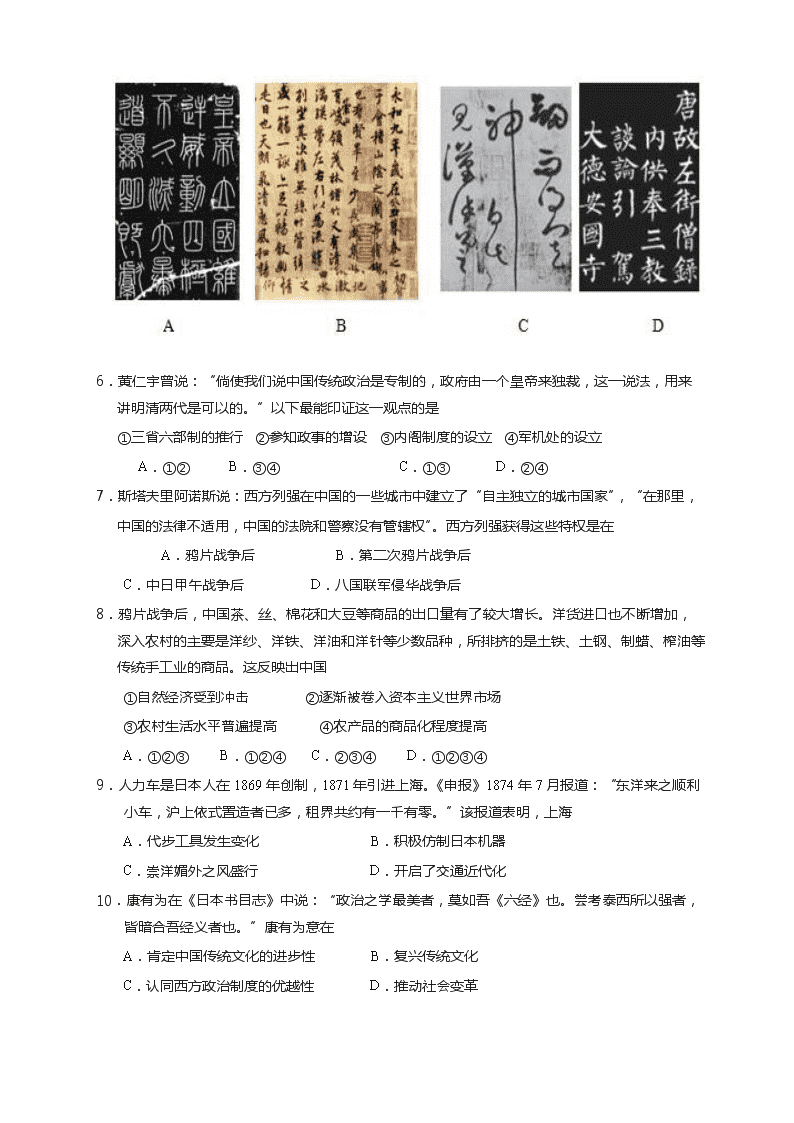 皇帝立國維
逆威動四極
不久滅六暴
道顯明既獻
永和九年歲在癸丑暮春之初會
于會稽山陰之蘭亭脩稧事
也羣賢畢至少長咸集此地
有崇山峻領茂林脩竹又有清流激
湍暎帶左右引以為流觴曲水
列坐其次雖無絲竹管弦之
盛一觴一詠亦足以暢敘幽情
是日也天朗氣清惠風和暢仰
唐故左街僧錄
內供奉三教
談論引 駕
大德安國寺
A B C D
6．黄仁宇曾说："倘使我们说中国传统政治是专制的，政府由一个皇帝来独裁，这一说法，用来
讲明清两代是可以的。"以下最能印证这一观点的是
①三省六部制的推行 ②参知政事的增设 ③内阁制度的设立 ④军机处的设立
A．①② B．③④ C．①③ D．②④
7．斯塔夫里阿诺斯说：西方列强在中国的一些城市中建立了"自主独立的城市国家"，"在那里，
中国的法律不适用，中国的法院和警察没有管辖权"。西方列强获得这些特权是在
A．鸦片战争后 B．第二次鸦片战争后
C．中日甲午战争后 D．八国联军侵华战争后
8．鸦片战争后，中国茶、丝、棉花和大豆等商品的出口量有了较大增长。洋货进口也不断增加，
深入农村的主要是洋纱、洋铁、洋油和洋针等少数品种，所排挤的是土铁、土钢、制蜡、榨油等
传统手工业的商品。这反映出中国
①自然经济受到冲击 ②逐渐被卷入资本主义世界市场
③农村生活水平普遍提高 ④农产品的商品化程度提高
A．①②③ B．①②④ C．②③④ D．①②③④
9．人力车是日本人在 1869 年创制，1871 年引进上海。《申报》1874 年 7 月报道："东洋来之顺利
小车，沪上依式置造者已多，租界共约有一千有零。"该报道表明，上海
A．代步工具发生变化 B．积极仿制日本机器
C．崇洋媚外之风盛行 D．开启了交通近代化
10．康有为在《日本书目志》中说："政治之学最美者，莫如吾《六经》也。尝考泰西所以强者，
皆暗合吾经义者也。"康有为意在
A．肯定中国传统文化的进步性 B．复兴传统文化
C．认同西方政治制度的优越性 D．推动社会变革